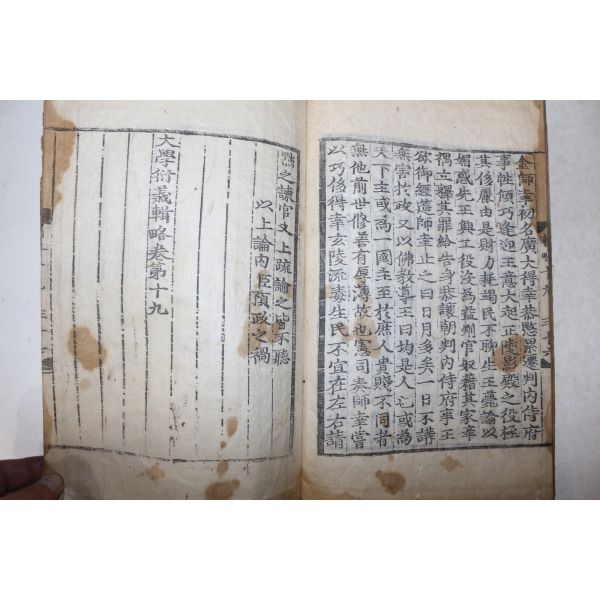 金師幸初名廣大得幸恭愍累遷判內侍府
事性傾巧逢迎王意大起正陵影殿之役極
其侈麗由是財力耗竭民不聊生王薨論以
媚惑先王興工役沒為益州官奴籍其家辛
禑立釋其罪給告身恭讓朝判內侍府事王
欲御經筵師幸止之曰日月多矣一日不講
無害於政又以佛敎導王曰均是人也或為
天下主或為一國主至於庶人貴賤不同者
無他前世修善有厚薄故也憲司奏師幸嘗
以巧侈得幸玄陵流毒生民不宜在左右請
黜之諫官又上疏論之皆不聽
以上論內臣預政之禍
大學衍義輯略卷第十九